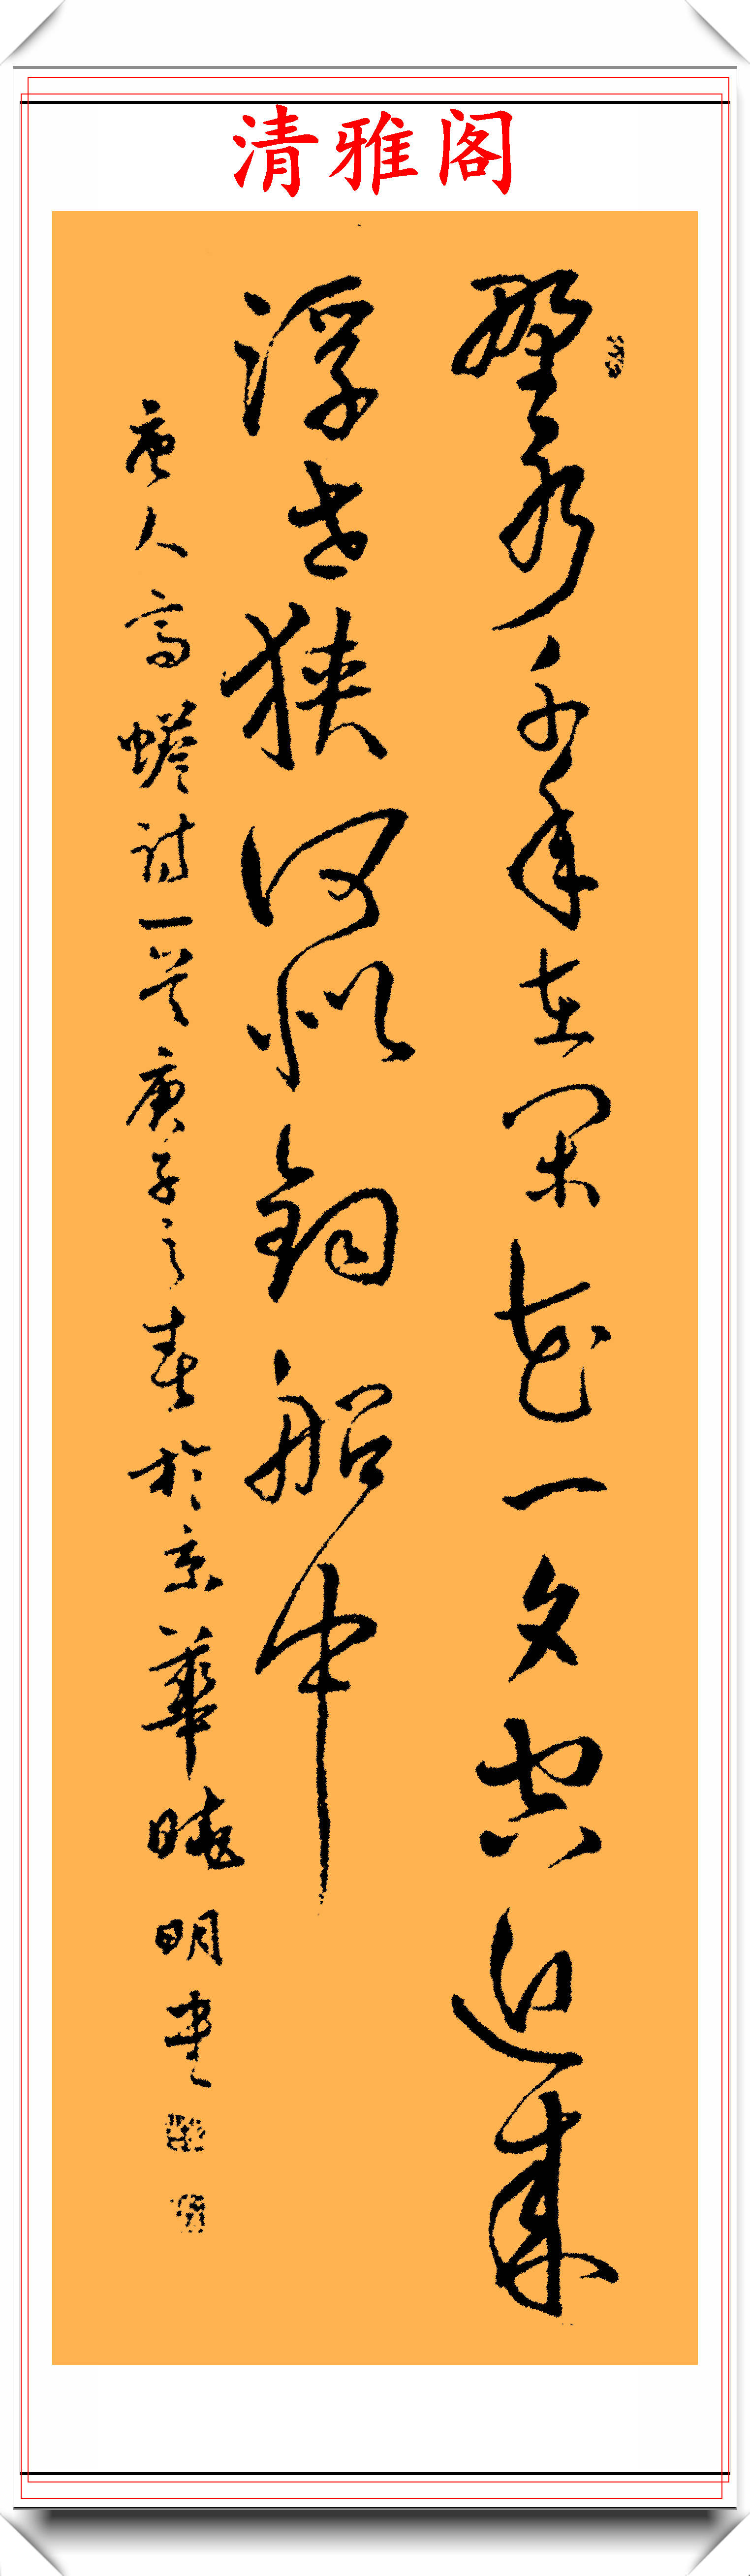 清雅阁
野水千年在闲花一夕空近来
浮世狭何似钓船中
唐人高蟾诗一首庚子之春於京華曉明書